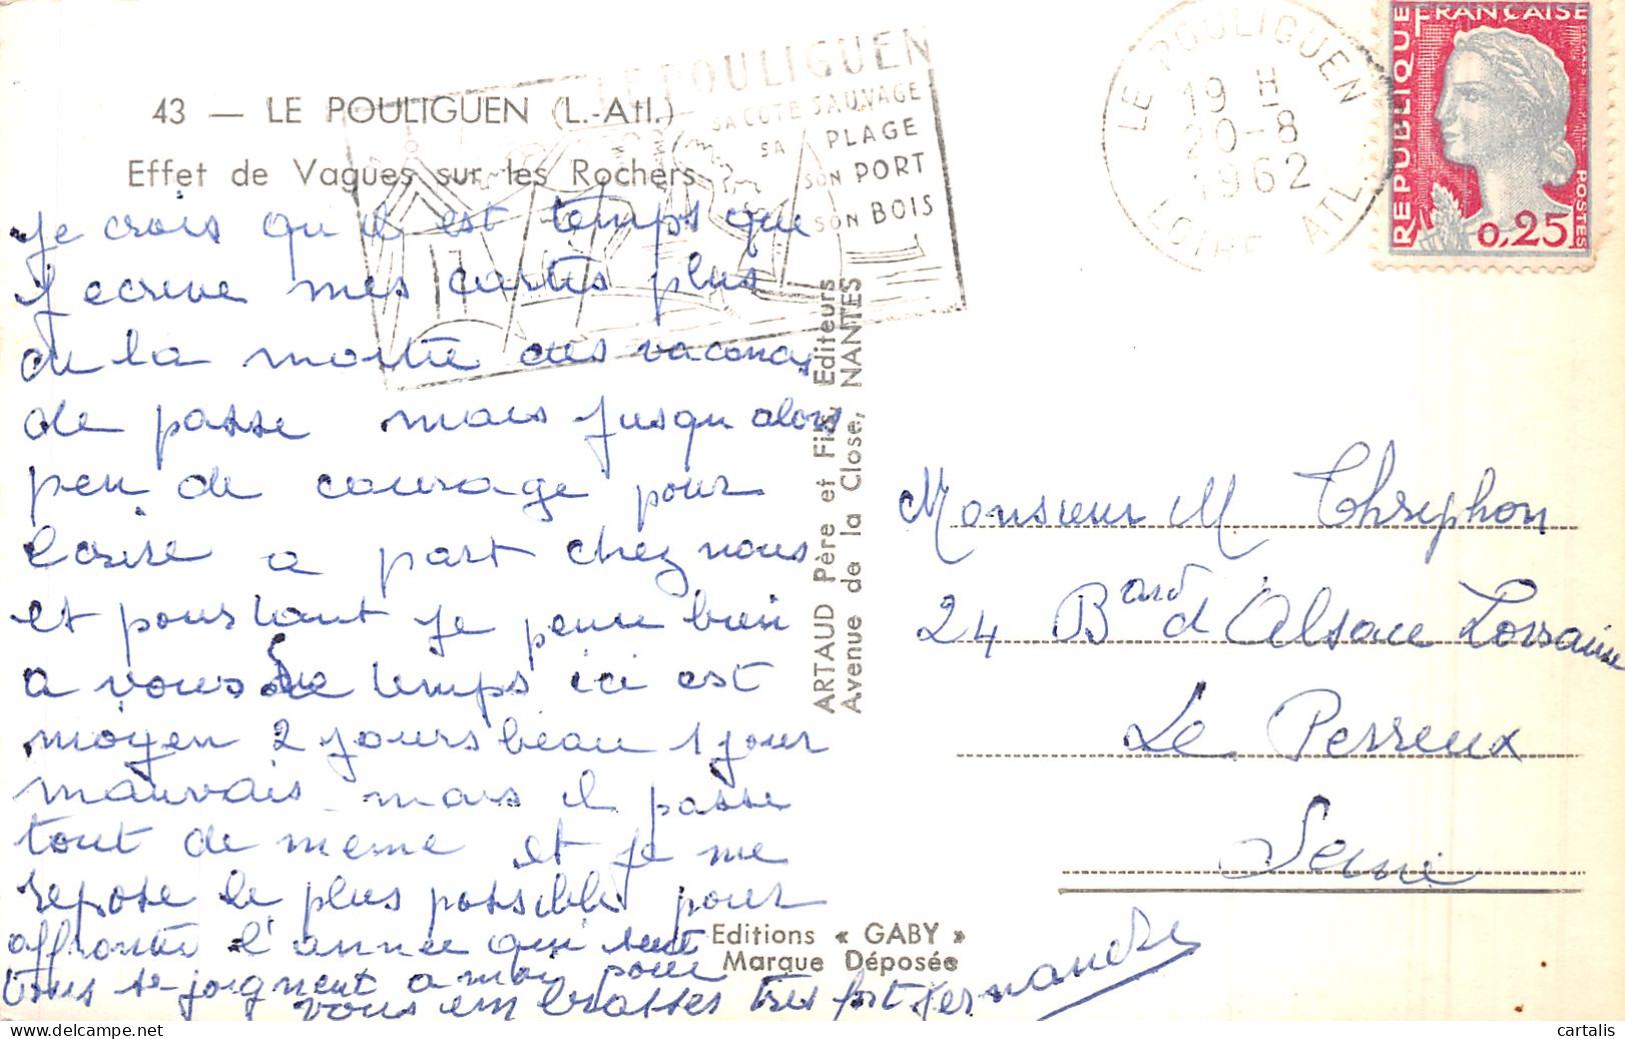 43 — LE POULIGUEN (L.-Atl.)
Effet de Vagues sur les Rochers
Je crois qu il est temps que
j ecrive mes cartes plus
de la moitie des vacances
de passe mais jusqu alors
peu de courage pour
ecrire a part chez nous
et pourtant je pense bien
a vous Le temps ici est
moyen 2 jours beau 1 jour
mauvais mais il passe
tout de meme et je me
repose le plus possible pour
affronter l'annee qui suit
tous se joignent a moi pour
vous embrasses tres fort Fernande
LE POULIGUEN
SA COTE SAUVAGE
SA PLAGE
SON PORT
SON BOIS
LE POULIGUEN
19 H
20-8
1962
LOIRE ATL.
REPUBLIQUE FRANCAISE
POSTES
0,25
ARTAUD Père et Fils, Editeurs
Avenue de la Close, NANTES
Monsieur M Thryphon
24 Bard d'Alsace Lorraine
Le Perreux
Seine
Editions « GABY »
Marque Déposée
cartalis